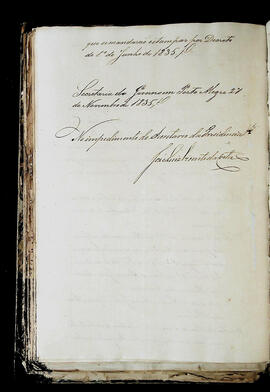 que se mandarão estampar por Decreto
de 1º de Junho de 1835.
Secretaria do Governo em Porto Alegre 27
de Novembro de 1835.
No impedimento do Secretario da Presidencia
José Luis
da Costa